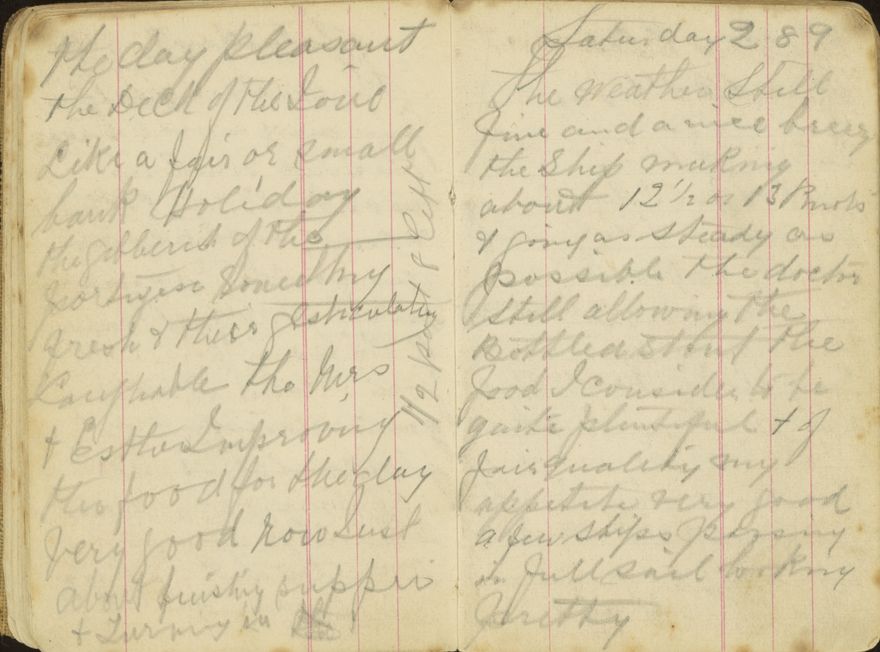 the day pleasant
the Deck of the
Like a fair or small
bank Holiday
the of the
something
fresh & their gesticulating
Laughable the Mrs
& Esther Improving
the food for the day
very good now Just
about finishing supper
& Turning in
1/2 past 8 left
Saturday 2 8 9
The Weather Still
fine and a nice breeze
the Ship making
about 12 1/2 or 13 Knots
& going as steady as
possible the doctor
still allowing the
Bottled stout the
food I consider to be
quite plentiful & of
fair quality my
appetite very good
a few ships passing
in full sail looking
pretty